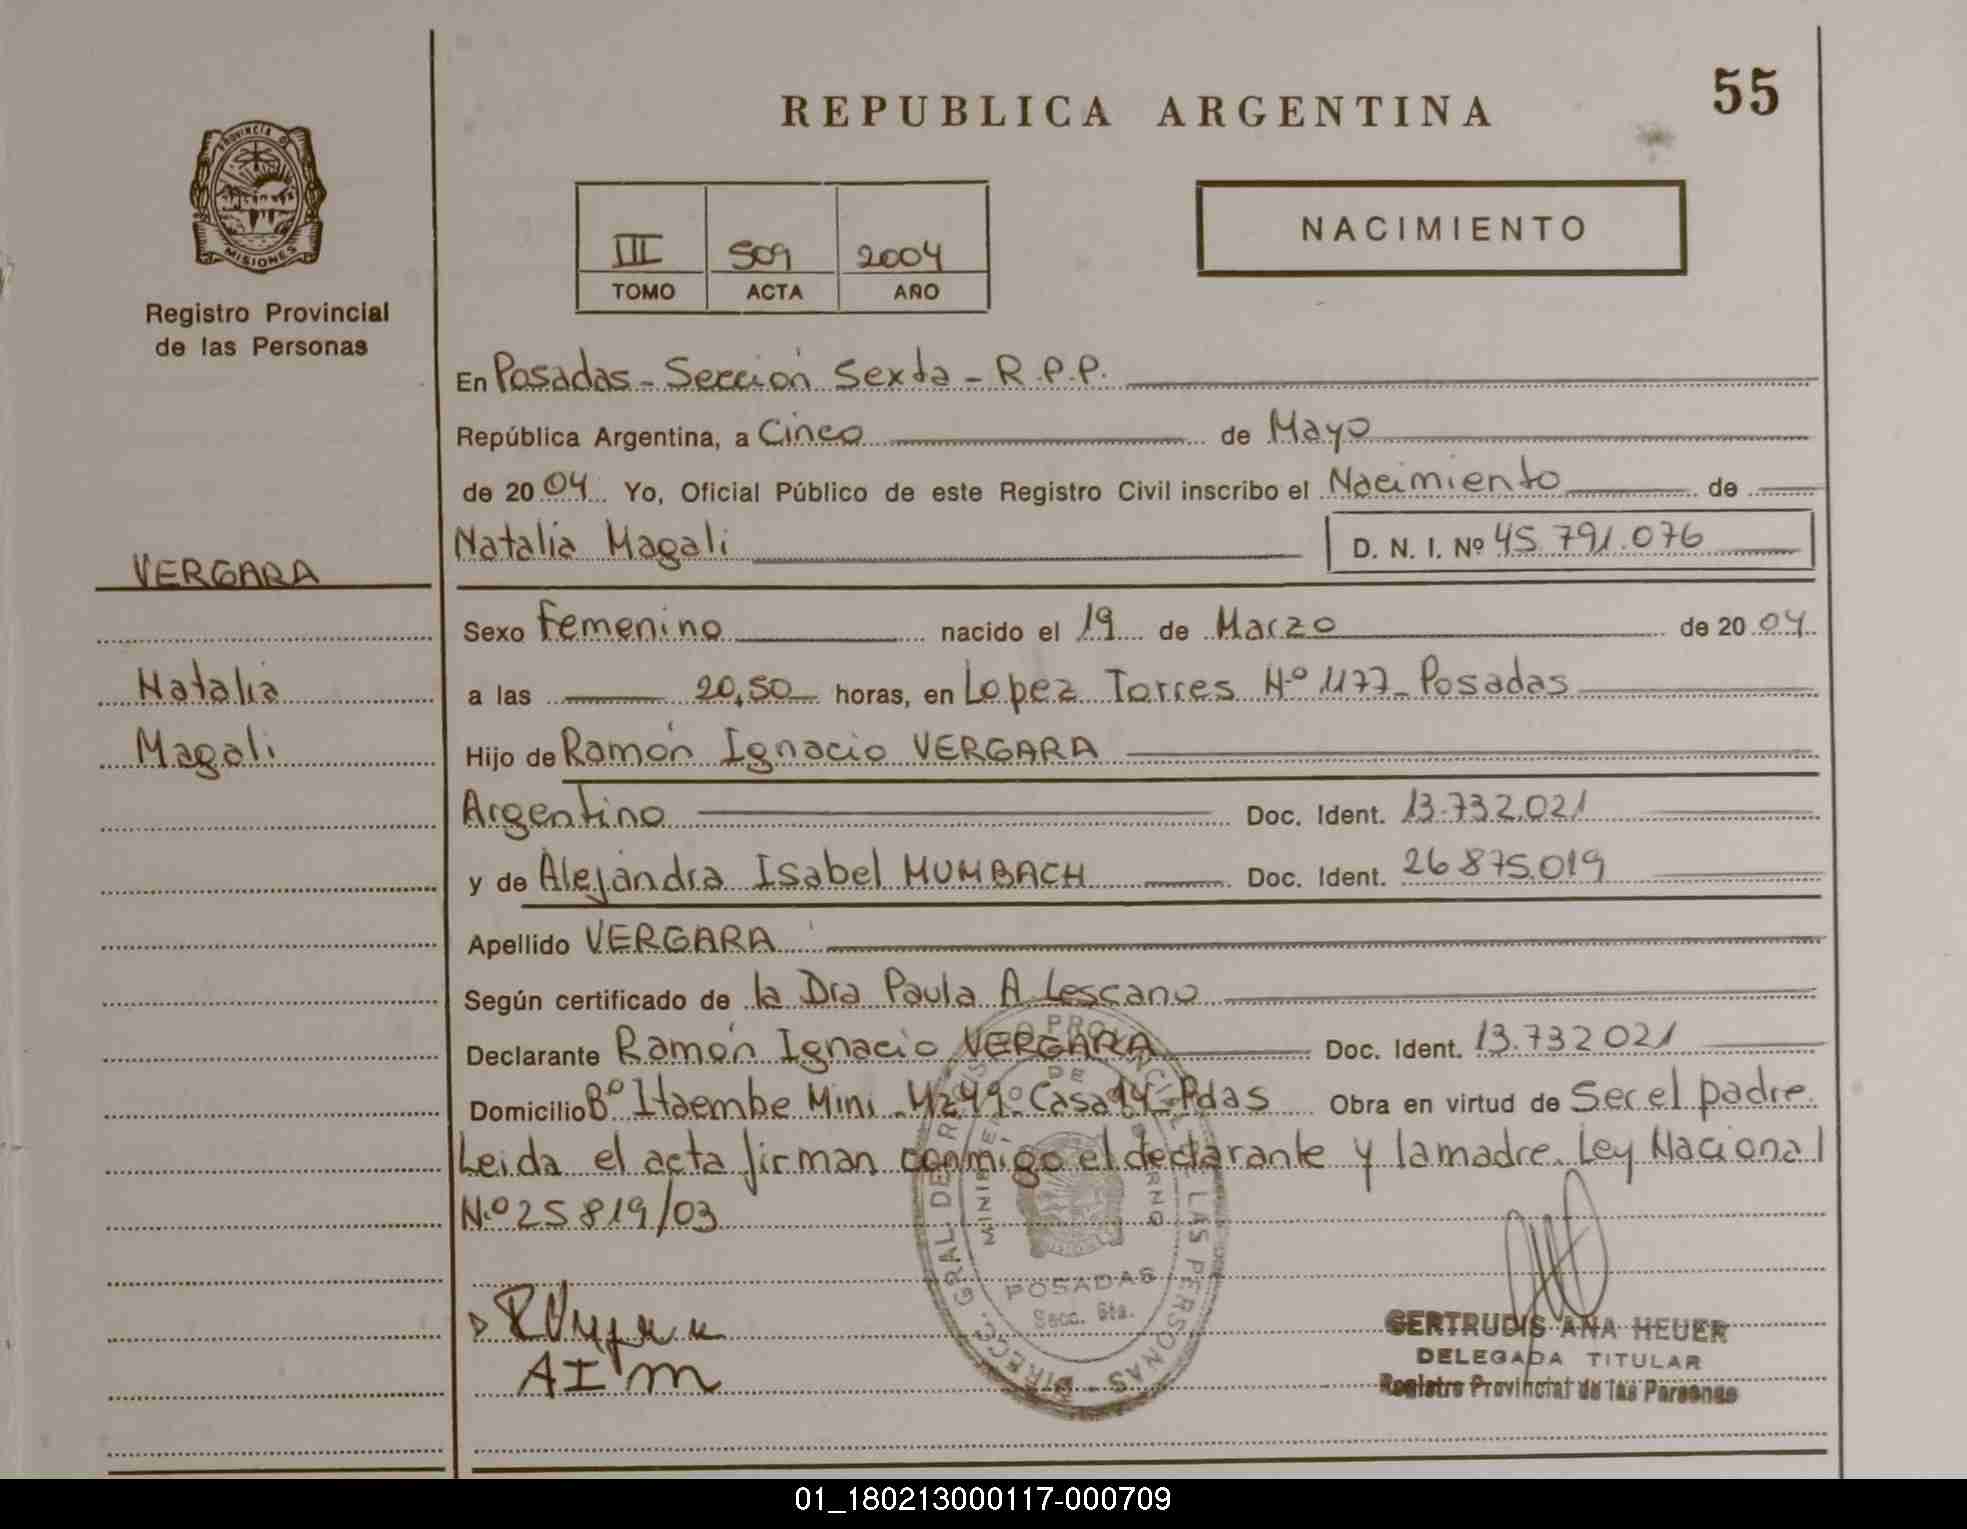 REPUBLICA ARGENTINA
55
PROVINCIA DE
MISIONES
Registro Provincial
de las Personas
III 509 2004
TOMO ACTA AÑO
NACIMIENTO
En Posadas - Sección Sexta - R.P.P.
República Argentina, a Cinco de Mayo
de 20 04 Yo, Oficial Público de este Registro Civil inscribo el Nacimiento de
Natalia Magali D. N. I. Nº 45.791.076
VERGARA
Natalia
Magali
Sexo Femenino nacido el 19 de Marzo de 20 04
a las 20,50 horas, en Lopez Torres Nº 1177 - Posadas
Hijo de Ramón Ignacio VERGARA
Argentino Doc. Ident. 13.732.021
y de Alejandra Isabel MUMBACH Doc. Ident. 26 875.019
Apellido VERGARA
Según certificado de la Dra Paula A Lescano
Declarante Ramón Ignacio VERGARA Doc. Ident. 13.732 021
Domicilio Bº Itaembe Mini - Mz 49º Casa 14 - Pdas Obra en virtud de Ser el padre.
Leida el acta firman conmigo el declarante y la madre. Ley Nacional
N.º 25819/03
POSADAS
Secc. 6ta.
AIM
GERTRUDIS ANA HEUER
DELEGADA TITULAR
Registro Provincial de las Personas
01_180213000117-000709